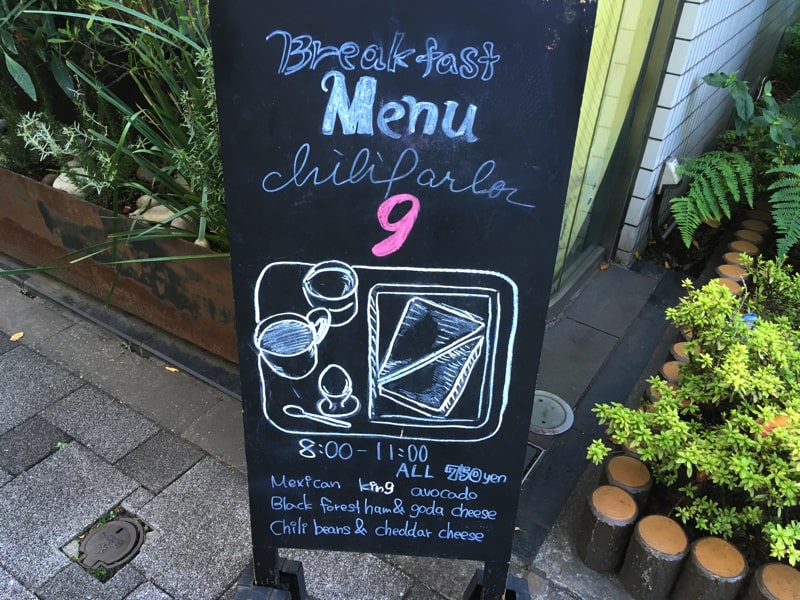 Breakfast
Menu
chili parlor
9
8:00-11:00
ALL 750yen
Mexican king avocado
Black forest ham & goda cheese
Chili beans & cheddar cheese